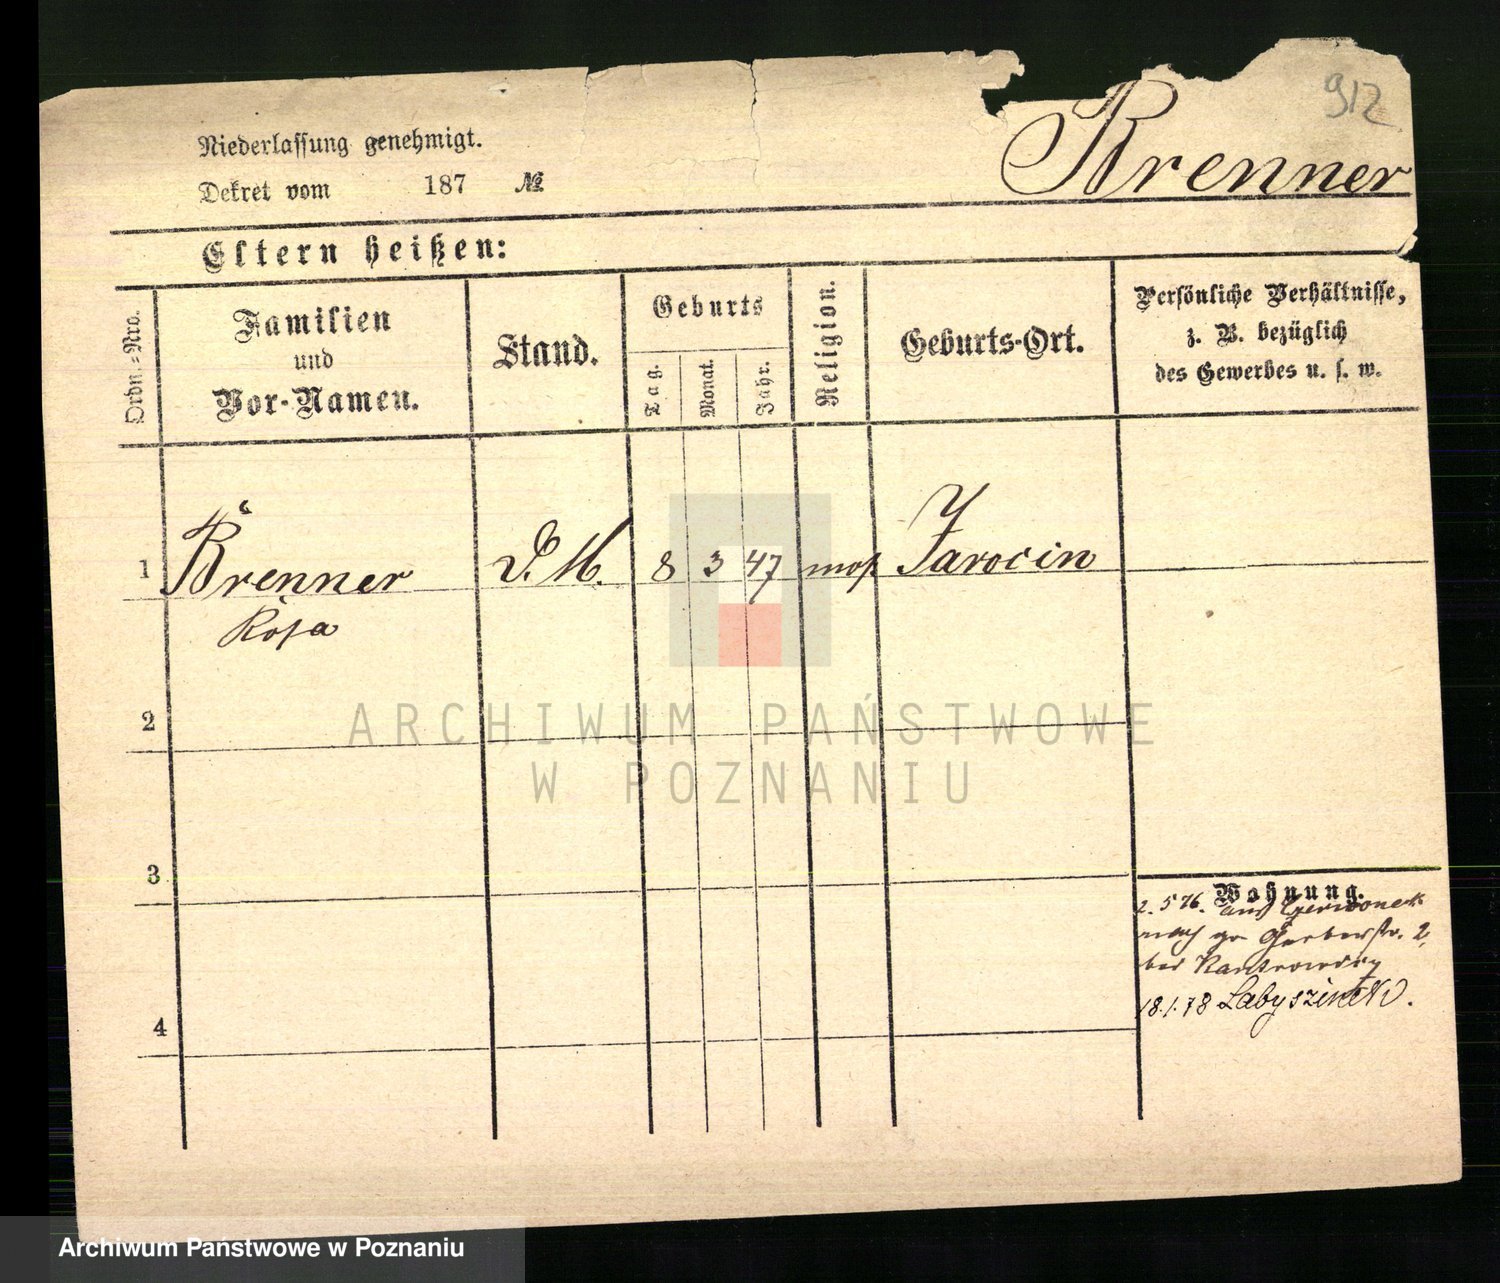 912
Brenner
Niederlassung genehmigt.
Dekret vom 187 №
Eltern heißen:
Ordn.-Nro.
Familien
und
Vor-Namen.
Stand.
Geburts
Tag.
Monat.
Jahr.
Religion.
Geburts-Ort.
Persönliche Verhältnisse,
z. B. bezüglich
des Gewerbes u. s. w.
1 Brenner D. M. 8 3 47 mos Jarocin
Rosa
2
3
4
Wohnung.
2. 5 76. aus
nach gr Gerberstr. 2,
bei
18.1.78
ARCHIWUM PAŃSTWOWE
W POZNANIU
Archiwum Państwowe w Poznaniu